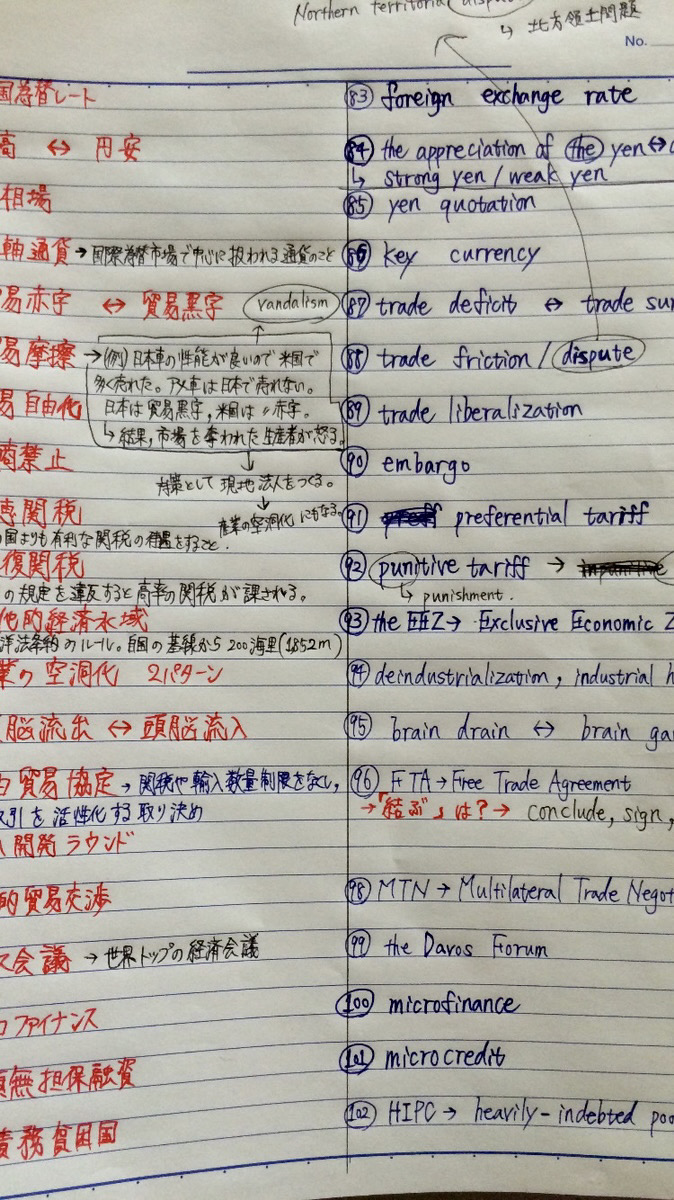 Northern territorial dispute
↳ 北方領土問題
No.
国為替レート ⑧③ foreign exchange rate
高 ↔ 円安 ⑧④ the appreciation of the yen ↔
↳ strong yen / weak yen
相場 ⑧⑤ yen quotation
軸通貨 → 国際為替市場で中心に扱われる通貨のこと ⑧⑥ key currency
易赤字 ↔ 貿易黒字 vandalism ⑧⑦ trade deficit ↔ trade sur
易摩擦 → (例) 日本車の性能が良いので米国で ⑧⑧ trade friction / dispute
多く売れた。アメ車は日本で売れない。
易自由化 日本は貿易黒字, 米国は 〃 赤字。 ⑧⑨ trade liberalization
↳ 結果, 市場を奪われた生産者が怒る。
商禁止 ⑨⓪ embargo
対策として 現地法人をつくる。
恵関税 産業の空洞化にもなる。 ⑨① preferential tariff
の国よりも有利な関税の待遇をすること.
復関税 ⑨② punitive tariff →
の規定を違反すると高率の関税が課される。 ↳ punishment.
他的経済水域 ⑨③ the EEZ → Exclusive Economic Z
洋法条約のルール。自国の基線から200海里(1852m)
業の空洞化 2パターン ⑨④ deindustrialization, industrial h
脳流出 ↔ 頭脳流入 ⑨⑤ brain drain ↔ brain ga
由貿易協定 → 関税や輸入数量制限をなくし, ⑨⑥ FTA → Free Trade Agreement
取引を活性化する取り決め →「結ぶ」は? → conclude, sign,
開発ラウンド
的貿易交渉 ⑨⑧ MTN → Multilateral Trade Negot
ス会議 → 世界トップの経済会議 ⑨⑨ the Davos Forum
ロファイナンス ①⓪⓪ microfinance
額無担保融資 ①⓪① microcredit
債務貧困国 ①⓪② HIPC → heavily-indebted poo